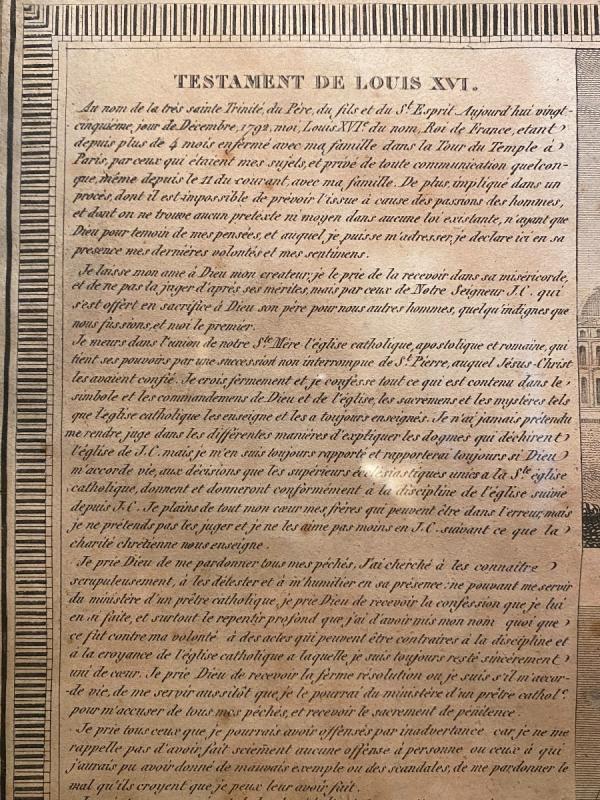 TESTAMENT DE LOUIS XVI.
Au nom de la très sainte Trinité, du Père, du fils et du St. Esprit. Aujourd'hui vingt-
cinquième, jour de Décembre, 1792, moi, Louis XVIe du nom, Roi de France, etant
depuis plus de 4 mois enfermé avec ma famille dans la Tour du Temple à
Paris, par ceux qui étaient mes sujets, et privé de toute communication quelcon-
que, même depuis le 11 du courant, avec ma famille. De plus, impliqué dans un
procès, dont il est impossible de prévoir l'issue à cause des passions des hommes,
et dont on ne trouve aucun pretexte ni moyen dans aucune loi existante, n'ayant que
Dieu pour temoin de mes pensées, et auquel je puisse m'adresser, je declare ici en sa
presence mes dernières volontés et mes sentimens.
Je laisse mon ame à Dieu mon createur, je le prie de la recevoir dans sa miséricorde,
et de ne pas la juger d'après ses mérites, mais par ceux de Notre Seigneur J.C. qui
s'est offert en sacrifice à Dieu son père pour nous autres hommes, quelqu'indignes que
nous fussions, et moi le premier.
Je meurs dans l'union de notre Ste. Mère l'église catholique, apostolique et romaine, qui
tient ses pouvoirs par une succession non interrompue de St. Pierre, auquel Jésus-Christ
les avaient confié. Je crois fermement et je confesse tout ce qui est contenu dans le
simbole et les commandemens de Dieu et de l'église, les sacremens et les mystères tels
que l'eglise catholique les enseigne et les a toujours enseignés. Je n'ai jamais prétendu
me rendre juge dans les différentes manières d'expliquer les dogmes qui déchirent
l'église de J.C. mais je m'en suis toujours rapporté et rapporterai toujours si Dieu
m'accorde vie, aux décisions que les supérieurs ecclésiastiques unies a la Ste. église
catholique, donnent et donneront conformèment à la discipline de l'église suivie
depuis J.C. Je plains de tout mon cœur mes frères qui peuvent être dans l'erreur, mais
je ne prétends pas les juger et je ne les aime pas moins en J.C. suivant ce que la
charité chrétienne nous enseigne.
Je prie Dieu de me pardonner tous mes péchés, J'ai cherché à les connaître
scrupuleusement, à les détester et à m'humilier en sa présence: ne pouvant me servir
du ministère d'un prêtre catholique, je prie Dieu de recevoir la confession que je lui
en ai faite, et surtout le repentir profond que j'ai d'avoir mis mon nom quoi que
ce fut contre ma volonté à des actes qui peuvent être contraires à la discipline et
à la croyance de l'église catholique a laquelle, je suis toujours resté sincèrement
uni de cœur. Je prie Dieu de recevoir la ferme résolution ou je suis s'il m'accor-
de vie, de me servir aussitôt que je le pourrai du ministère d'un prêtre cathole.
pour m'accuser de tous mes péchés, et recevoir le sacrement de pénitence.
Je prie tous ceux que je pourrais avoir offensés par inadvertance car je ne me
rappelle pas d'avoir fait sciemt aucune offense à personne ou ceux à qui
j'aurais pu avoir donné de mauvais exemple ou des scandales, de me pardonner le
mal qu'ils croyent que je peux leur avoir fait.